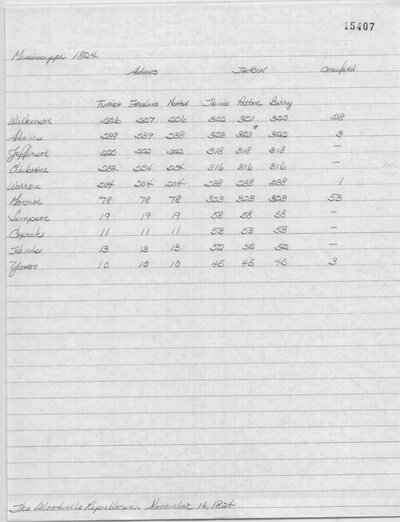 15407
Mississippi 1824
Adams Jackson Crawford
Turner Freeland Norton Hinds Patton Barry
Wilkinson 226 227 226 322 321 322 28
Adams 239 239 238 323 323* 322 3
Jefferson 222 318 318 318 —
Claiborne 254 254 254 316 316 316 —
Warren 204 204 204 238 238 238 1
Monroe 78 78 78 323 323 323 53
Simpson 19 19 19 58 58 58 —
Copiah 11 11 11 53 53 53 —
Hinds 13 13 13 52 52 52 —
Yazoo 10 10 10 45 45 45 3
The Woodville Republican. November 16, 1824